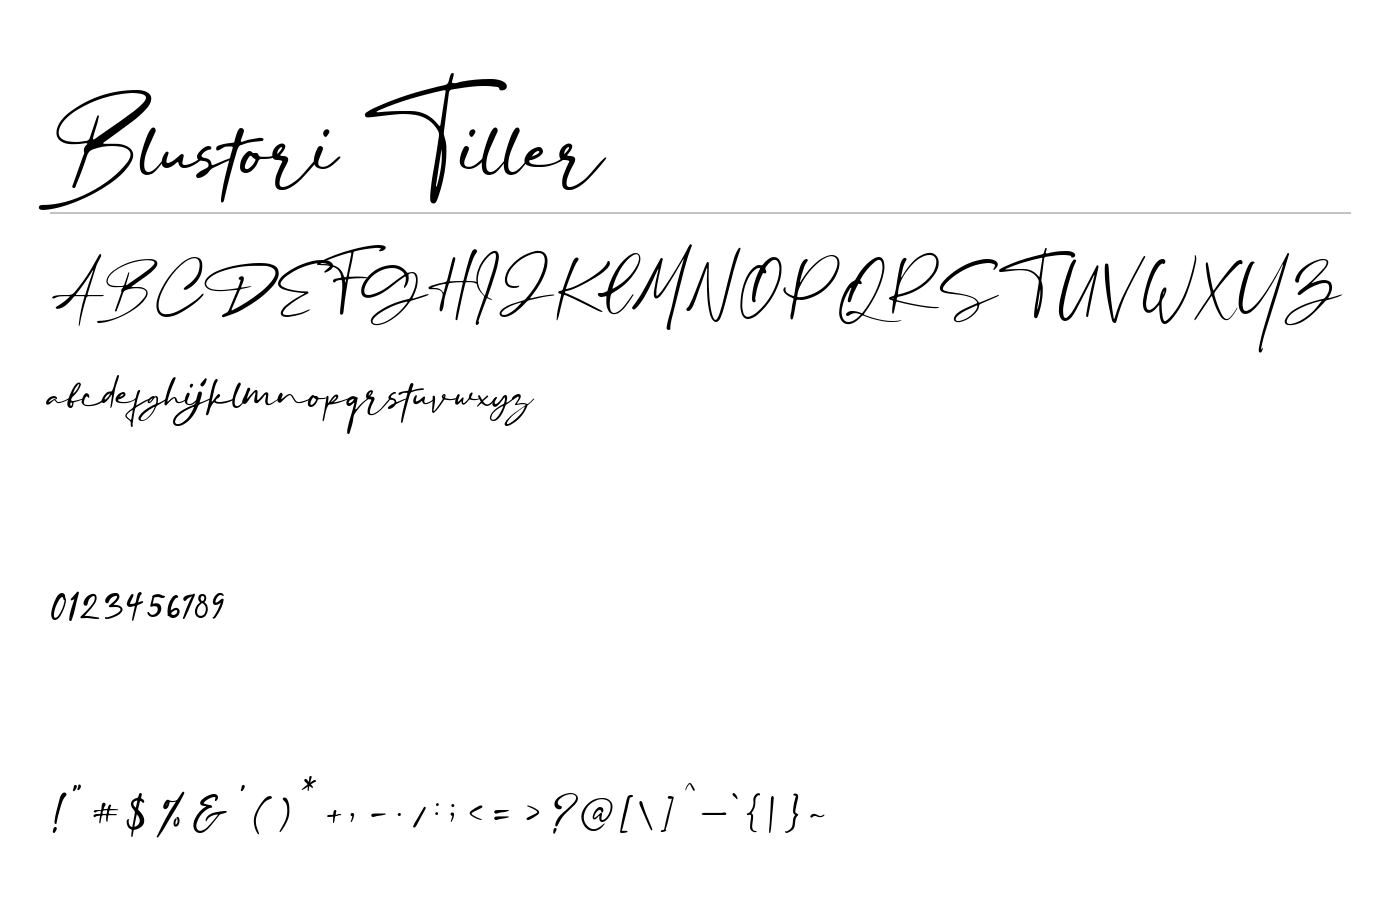 Blustori Tiller
ABCDEFGHIJKLMNOPQRSTUVWXYZ
abcdefghijklmnopqrstuvwxyz
0123456789
!"#$%&'()*+,-./:;<=>?@[\]^_`{|}~